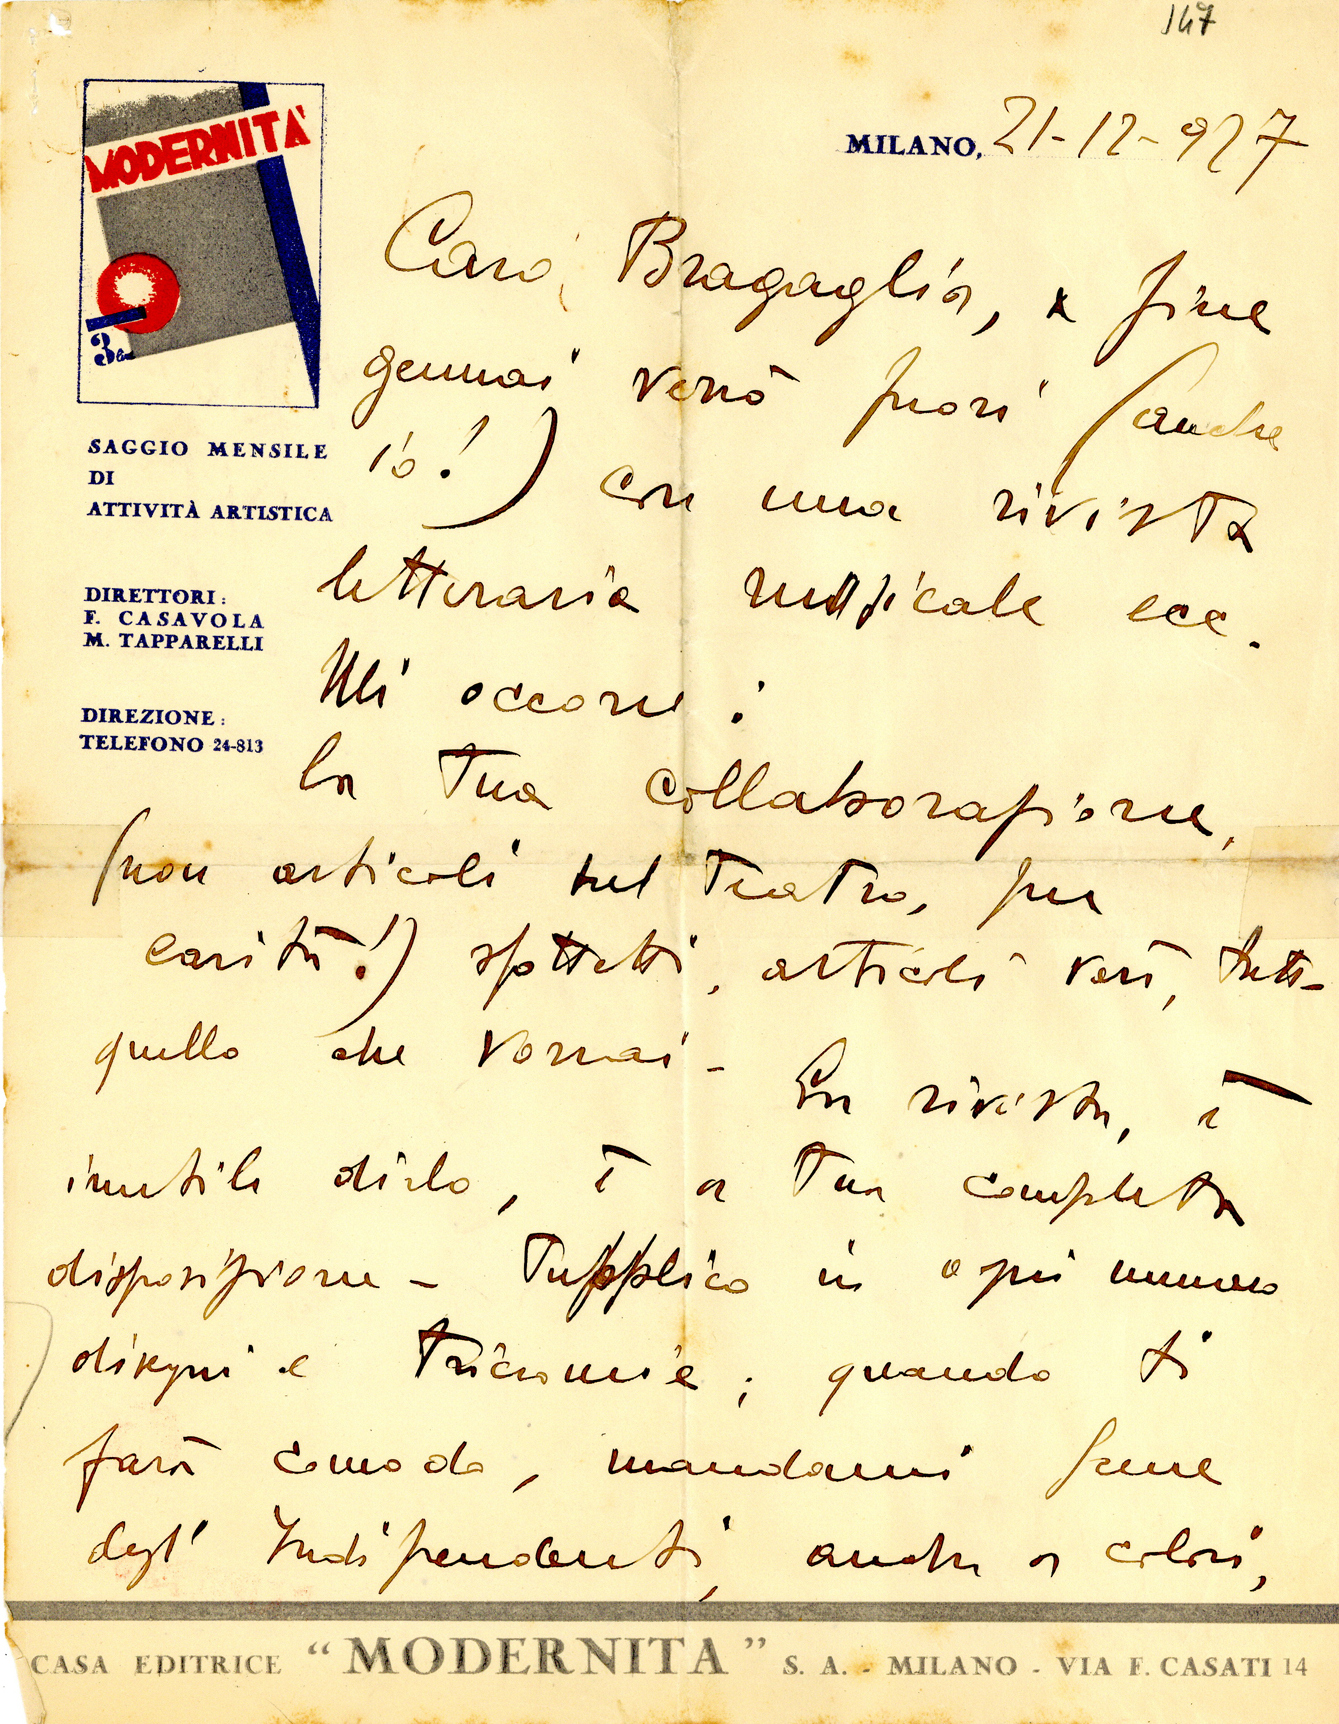 147
MODERNITÀ
3 Lire
MILANO, 21-12-927
Caro Bragaglia, a fine
gennai verrò fuori (anche
io!) con una rivista
letteraria musicale ecc.
Mi occorre:
la tua collaborazione,
(non articoli sul teatro, per
carità!) sfottetti, articoli veri, tutto
quello che vorrai -
La rivista, è
inutile dirlo, è a tua completa
disposizione - Pubblico in ogni numero
disegni e tricromie; quando ti
farà comodo, mandami scene
degl' Indipendenti, anche a colori,
SAGGIO MENSILE
DI
ATTIVITÀ ARTISTICA
DIRETTORI:
F. CASAVOLA
M. TAPPARELLI
DIREZIONE:
TELEFONO 24-813
CASA EDITRICE "MODERNITA" S. A. - MILANO - VIA F. CASATI 14